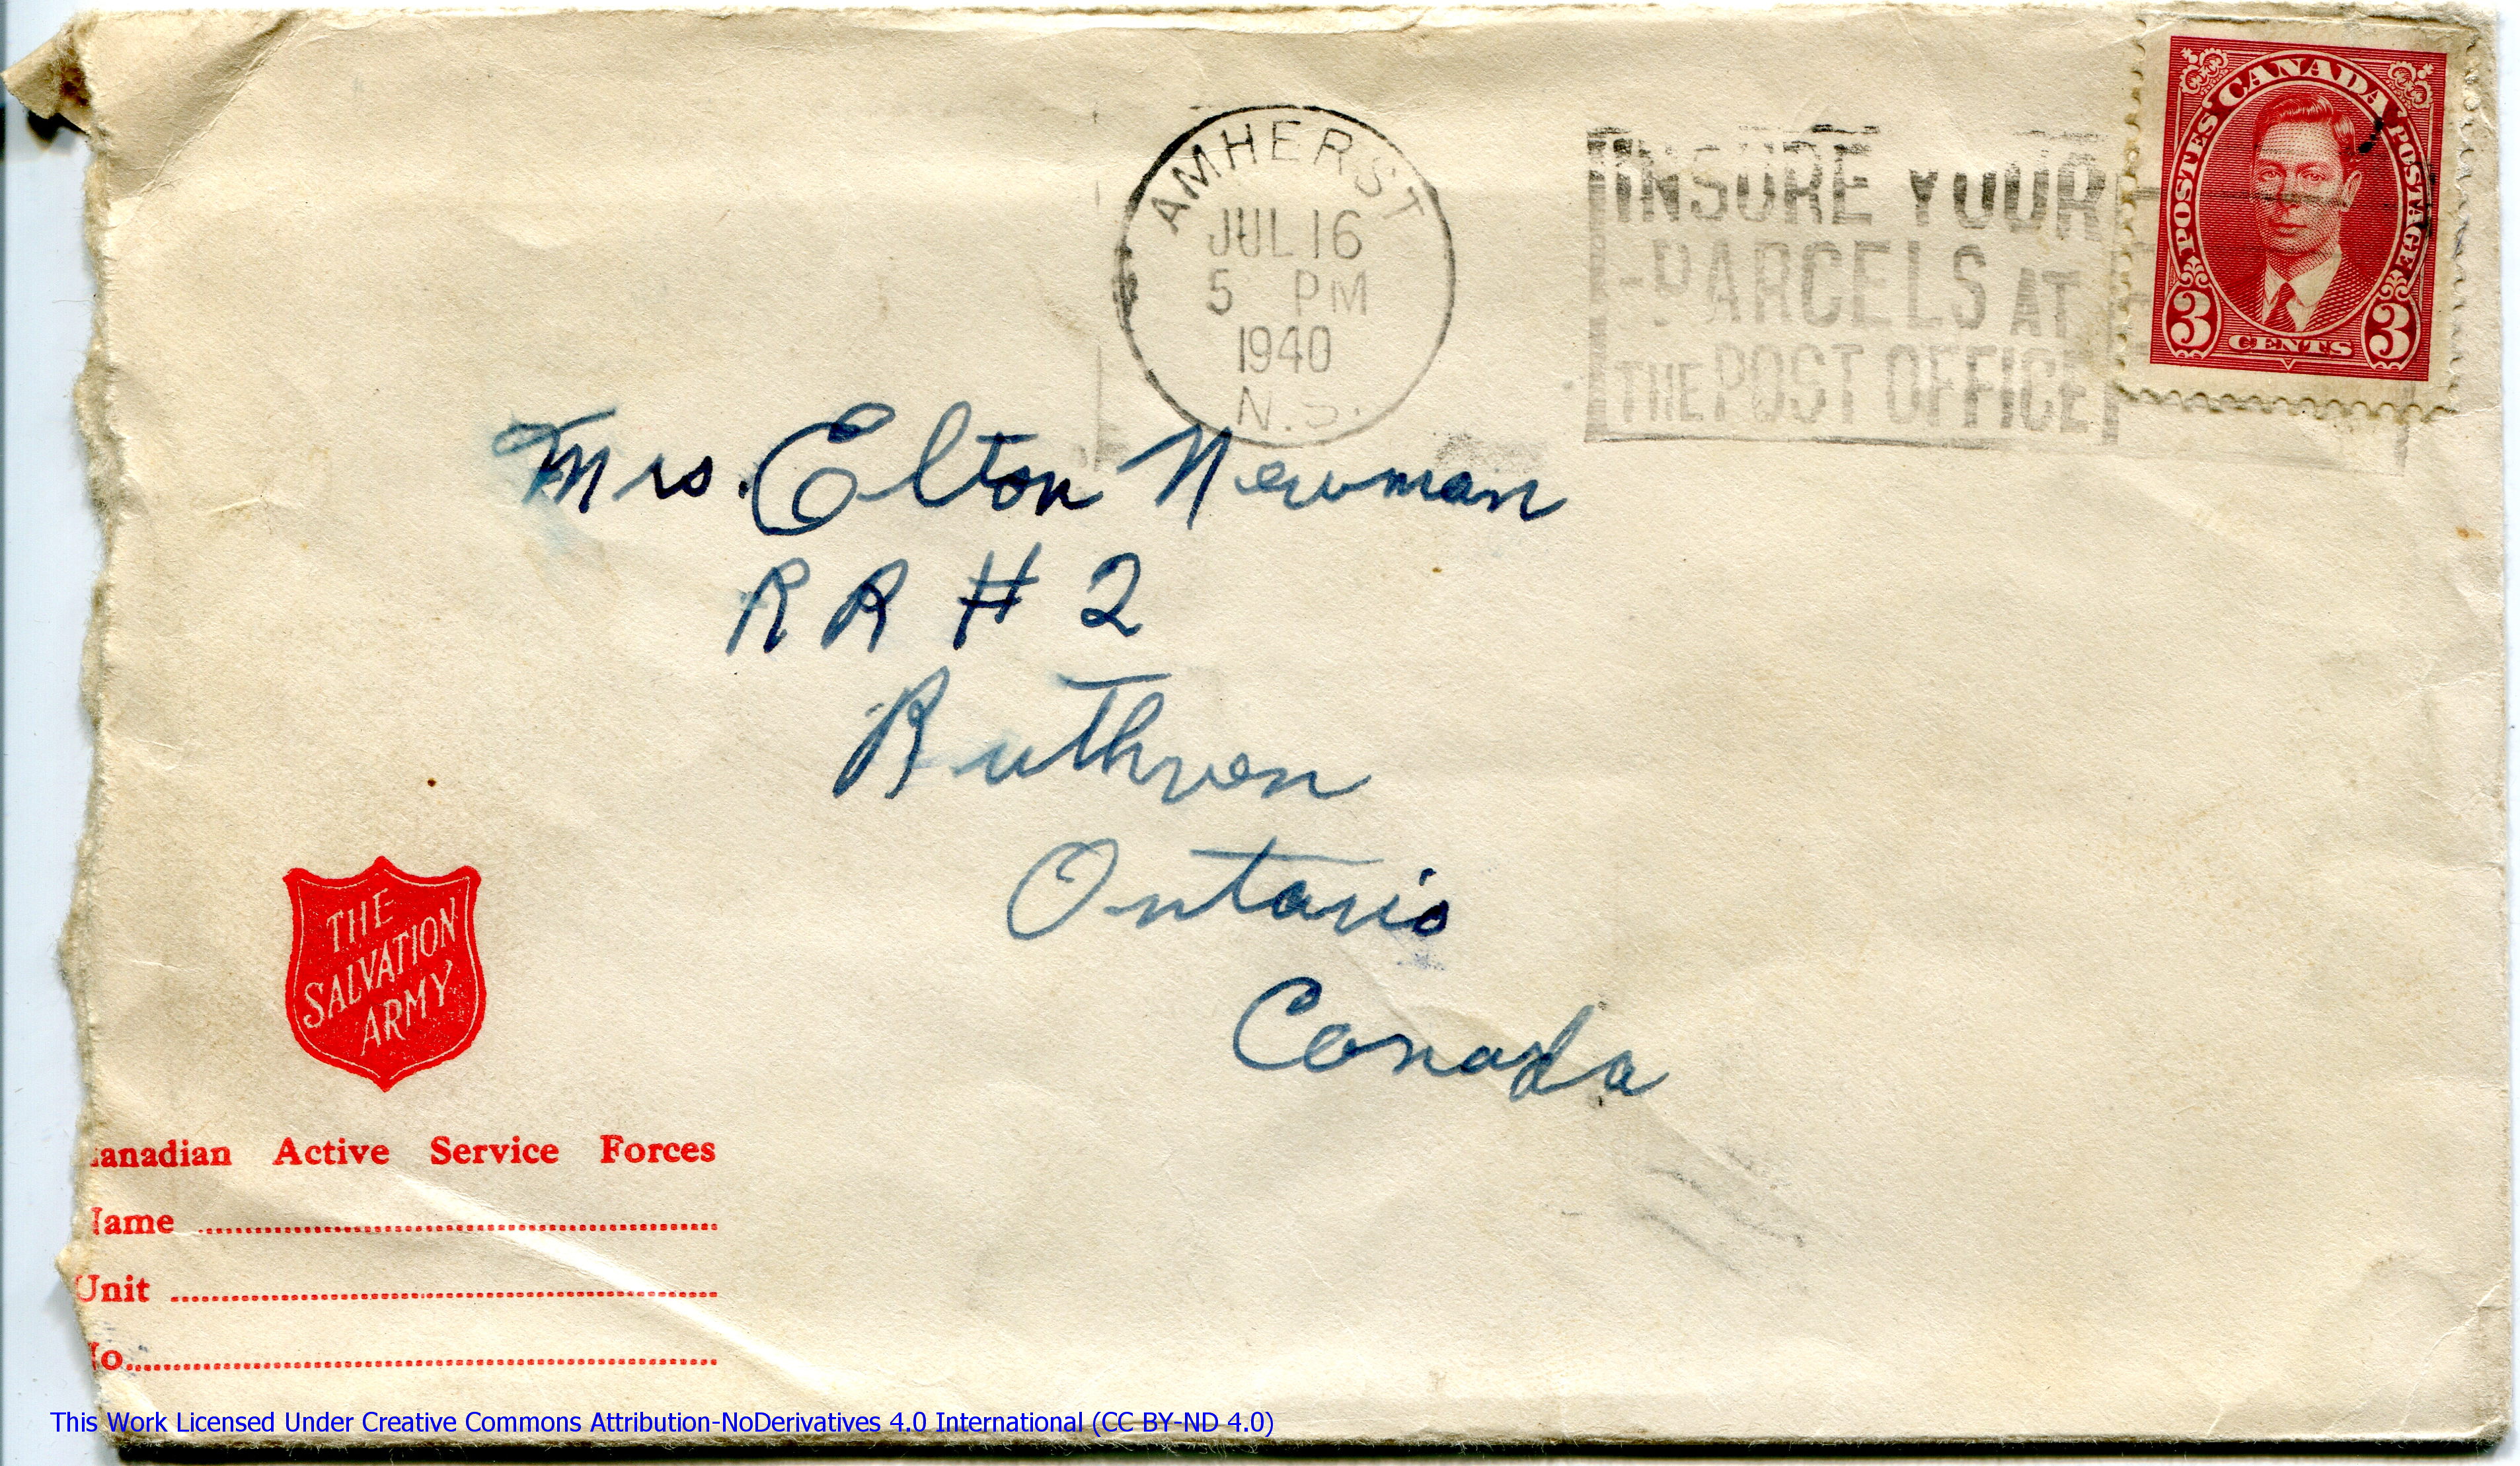 POSTES CANADA POSTAGE
3 CENTS 3
AMHERST
JUL 16
5 PM
1940
N.S.
INSURE YOUR
PARCELS AT
THE POST OFFICE
Mrs. Elton Newman
RR # 2
Ruthven
Ontario
Canada
THE
SALVATION
ARMY
anadian Active Service Forces
ame
Unit
o.
This Work Licensed Under Creative Commons Attribution-NoDerivatives 4.0 International (CC BY-ND 4.0)